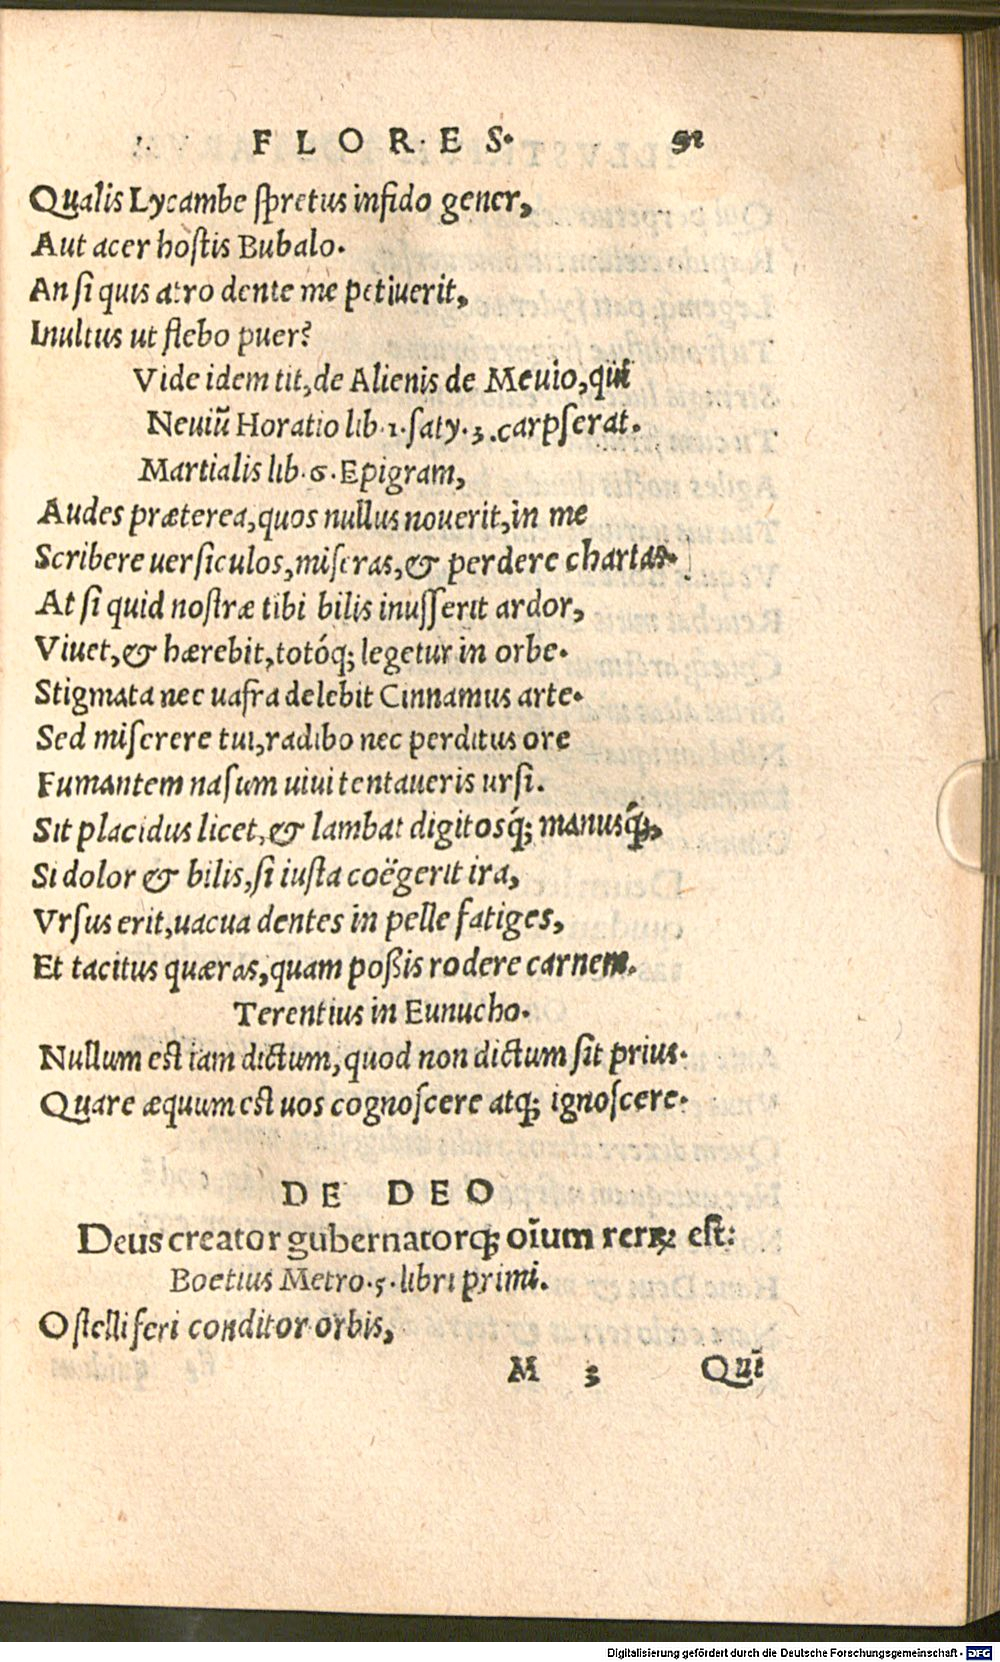 FLORES. 91
Qualis Lycambe ſpretus infido gener,
Aut acer hoſtis Bubalo.
An ſi quis atro dente me petiuerit,
Inultus ut flebo puer?
Vide idem tit, de Alienis de Meuio, qui
Neuiũ Horatio lib. 1. ſaty. 3. carpſerat.
Martialis lib. 6. Epigram,
Audes præterea, quos nullus nouerit, in me
Scribere uerſiculos, miſeras, & perdere chartas.
At ſi quid noſtræ tibi bilis inuſſerit ardor,
Viuet, & hærebit, totóq; legetur in orbe.
Stigmata nec uafra delebit Cinnamus arte.
Sed miſerere tui, radibo nec perditus ore
Fumantem naſum uiui tentaueris urſi.
Sit placidus licet, & lambat digitosq́; manusq́;,
Si dolor & bilis, ſi iuſta coëgerit ira,
Vrſus erit, uacua dentes in pelle fatiges,
Et tacitus quæras, quam poßis rodere carnem.
Terentius in Eunucho.
Nullum eſt iam dictum, quod non dictum ſit prius.
Quare æquum eſt uos cognoſcere atq; ignoſcere.
DE DEO
Deus creator gubernatorq; oĩum rerꝝ eſt:
Boetius Metro. 5. libri primi.
O ſtelliferi conditor orbis,
M 3 Qui
Digitalisierung gefördert durch die Deutsche Forschungsgemeinschaft - DFG